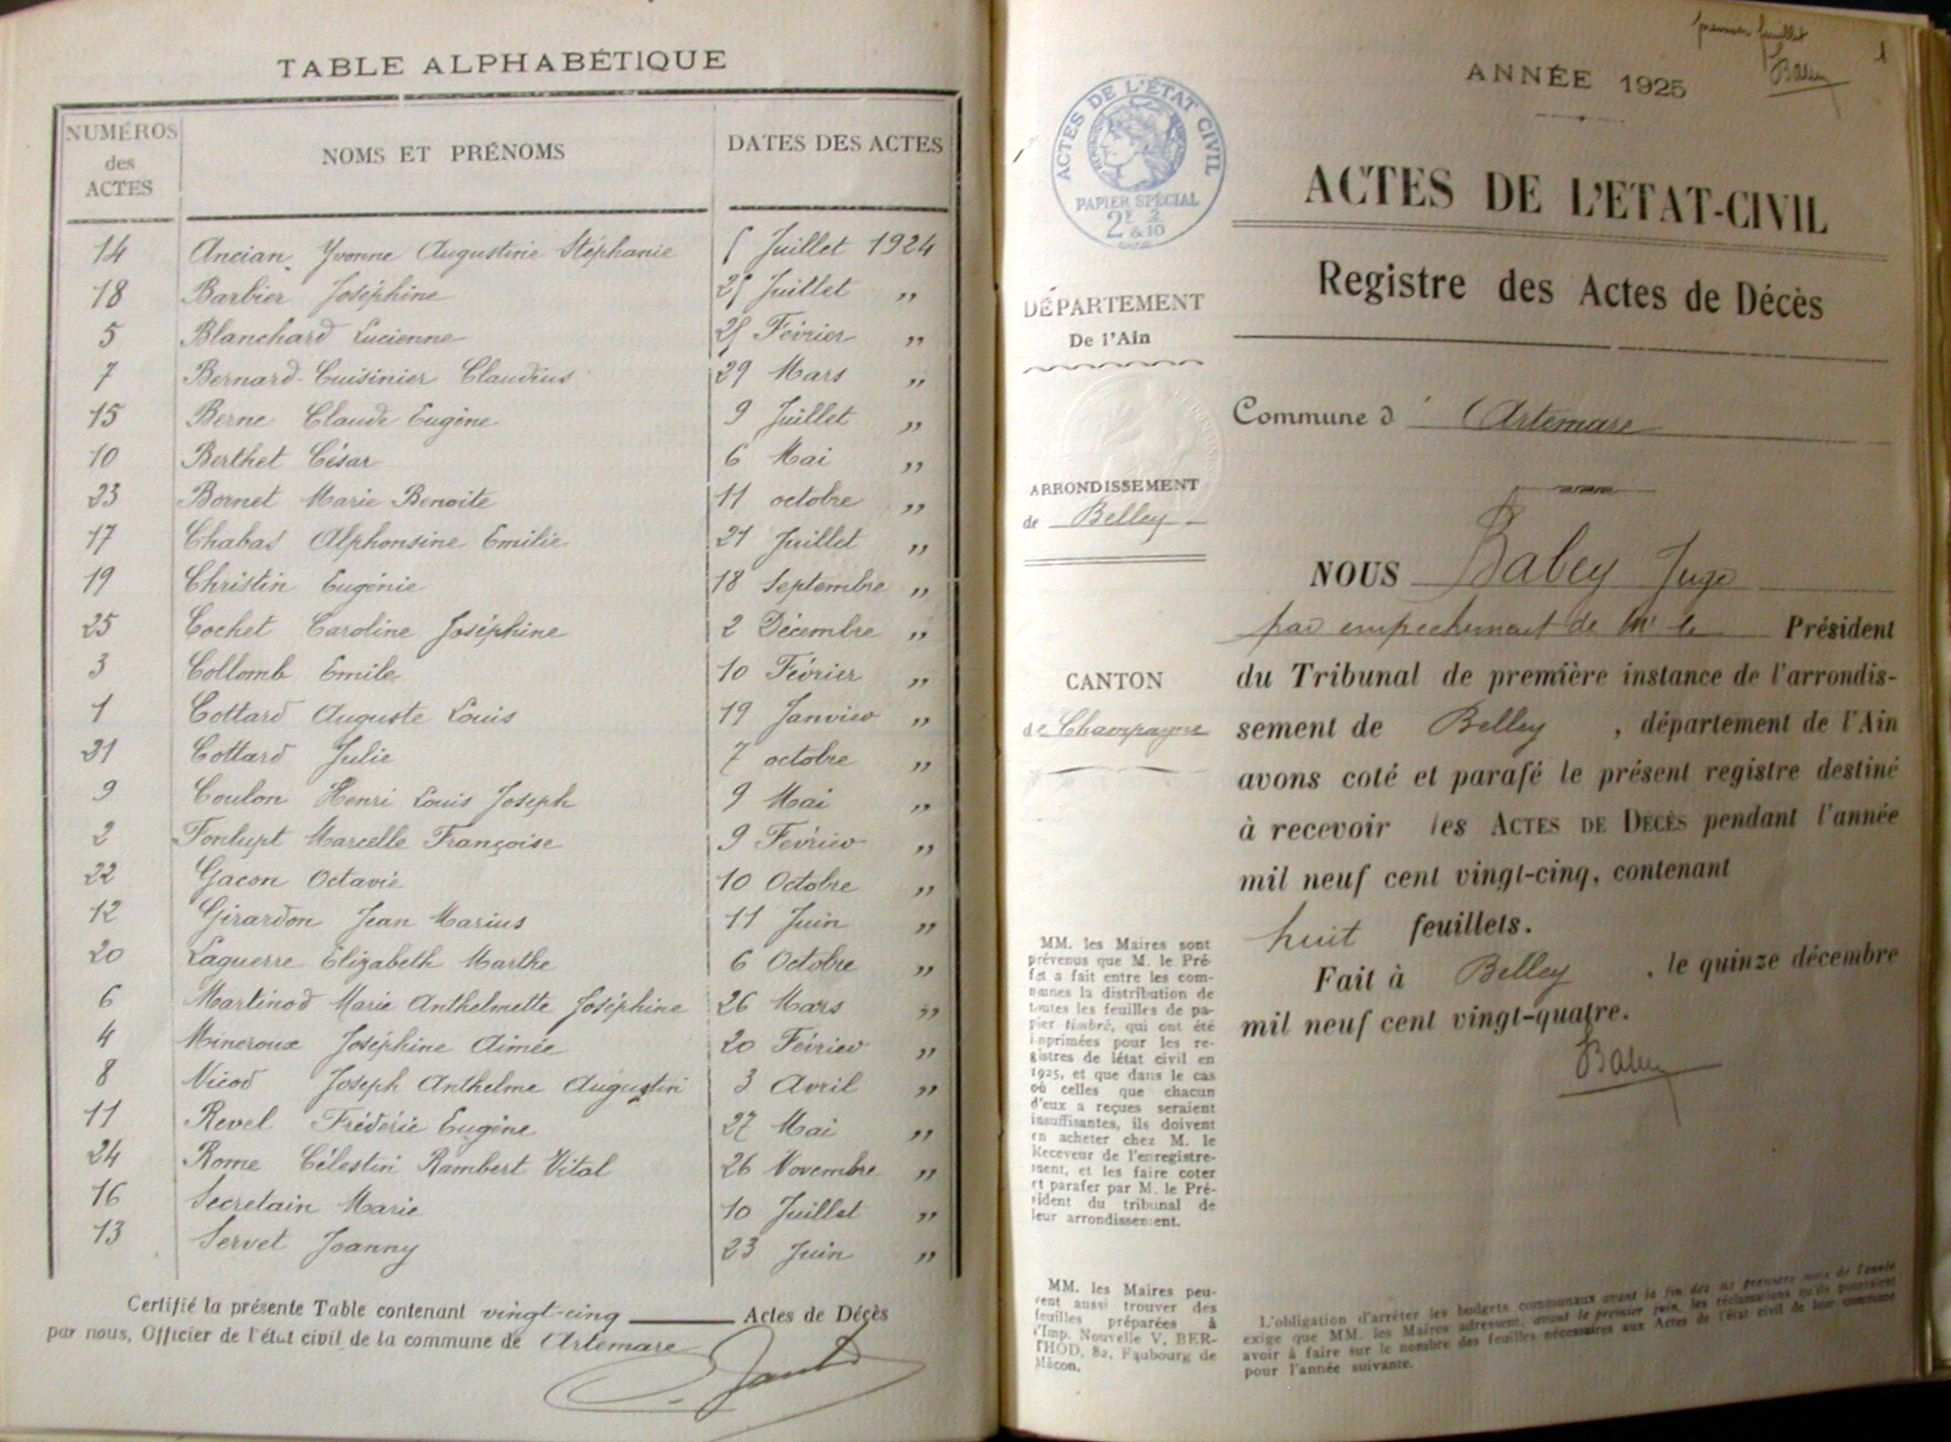 TABLE ALPHABÉTIQUE
NUMÉROS des ACTES
NOMS ET PRÉNOMS
DATES DES ACTES
14 Ancian Yvonne Augustine Stéphanie 5 Juillet 1924
18 Barbier Joséphine 25 Juillet "
5 Blanchard Lucienne 25 Février "
7 Bernard-Cuisinier Claudius 29 Mars "
15 Berne Claude Eugène 9 Juillet "
10 Berthet César 6 Mai "
23 Bornet Marie Benoite 11 octobre "
17 Chabas Alphonsine Emilie 21 Juillet "
19 Christin Eugénie 18 Septembre "
25 Cochet Caroline Joséphine 2 Décembre "
3 Collomb Emile 10 Février "
1 Cottard Auguste Louis 19 Janvier "
21 Cottard Julie 7 octobre "
9 Coulon Henri Louis Joseph 9 Mai "
2 Fontupt Marcelle Françoise 9 Février "
22 Gacon Octavie 10 Octobre "
12 Girardon Jean Marius 11 Juin "
20 Laguerre Elizabeth Marthe 6 Octobre "
6 Martinod Marie Anthelmette Joséphine 26 Mars "
4 Mineroux Joséphine Aimée 20 Février "
8 Nicod Joseph Anthelme Augustin 3 Avril "
11 Revel Frédéric Eugène 27 Mai "
24 Rome Célestin Rambert Vital 26 Novembre "
16 Secretain Marie 10 Juillet "
13 Servet Joanny 23 Juin "
Certifié la présente Table contenant vingt-cinq Actes de Décès
par nous, Officier de l'état civil de la commune de Artemare
premier feuillet
Babey
1
ANNÉE 1925
ACTES DE L'ÉTAT CIVIL
PAPIER SPÉCIAL
2F 2
& 10
ACTES DE L'ETAT-CIVIL
Registre des Actes de Décès
DÉPARTEMENT
De l'Ain
Commune d' Artemare
ARRONDISSEMENT
de Belley
CANTON
de Champagne
NOUS Babey Juge
par empechement de Mr le Président
du Tribunal de première instance de l'arrondis-
sement de Belley, département de l'Ain
avons coté et parafé le présent registre destiné
à recevoir les ACTES DE DÉCÈS pendant l'année
mil neuf cent vingt-cinq, contenant
huit feuillets.
Fait à Belley, le quinze décembre
mil neuf cent vingt-quatre.
Babey
MM. les Maires sont
prévenus que M. le Pré-
fet a fait entre les com-
munes la distribution de
toutes les feuilles de pa-
pier timbré, qui ont été
imprimées pour les re-
gistres de létat civil en
1925, et que dans le cas
où celles que chacun
d'eux a reçues seraient
insuffisantes, ils doivent
en acheter chez M. le
Receveur de l'enregistre-
ment, et les faire coter
et parafer par M. le Pré-
sident du tribunal de
leur arrondissement.
MM. les Maires peu-
vent aussi trouver des
feuilles préparées à
l'Imp. Nouvelle V. BER-
THOD, 82, Faubourg de
Mâcon.
L'obligation d'arrêter les budgets communaux avant la fin des six premiers mois de l'année
exige que MM. les Maires adressent, avant le premier juin, les réclamations qu'ils pourraient
avoir à faire sur le nombre des feuilles nécessaires aux Actes de l'état civil de leur commune
pour l'année suivante.